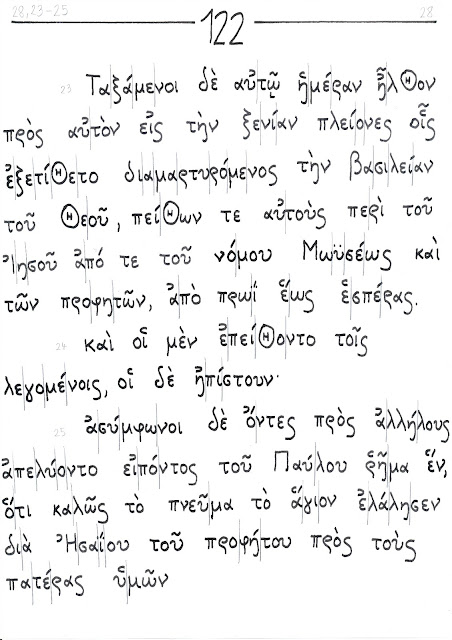 28,23-25 122 28
23 Ταξάμενοι δὲ αὐτῷ ἡμέραν ἦλΘον
πρὸς αὐτὸν εἰς τὴν ξενίαν πλείονες οἷς
ἐξετίΘετο διαμαρτυρόμενος τὴν βασιλείαν
τοῦ Θεοῦ, πείΘων τε αὐτοὺς περὶ τοῦ
Ἰησοῦ ἀπό τε τοῦ νόμου Μωϋσέως καὶ
τῶν προφητῶν, ἀπὸ πρωΐ ἕως ἑσπέρας.
24 καὶ οἱ μὲν ἐπείΘοντο τοῖς
λεγομένοις, οἱ δὲ ἠπίστουν·
25 ἀσύμφωνοι δὲ ὄντες πρὸς ἀλλήλους
ἀπελύοντο εἰπόντος τοῦ Παύλου ῥῆμα ἕν,
ὅτι καλῶς τὸ πνεῦμα τὸ ἅγιον ἐλάλησεν
διὰ Ἠσαΐου τοῦ προφήτου πρὸς τοὺς
πατέρας ὑμῶν